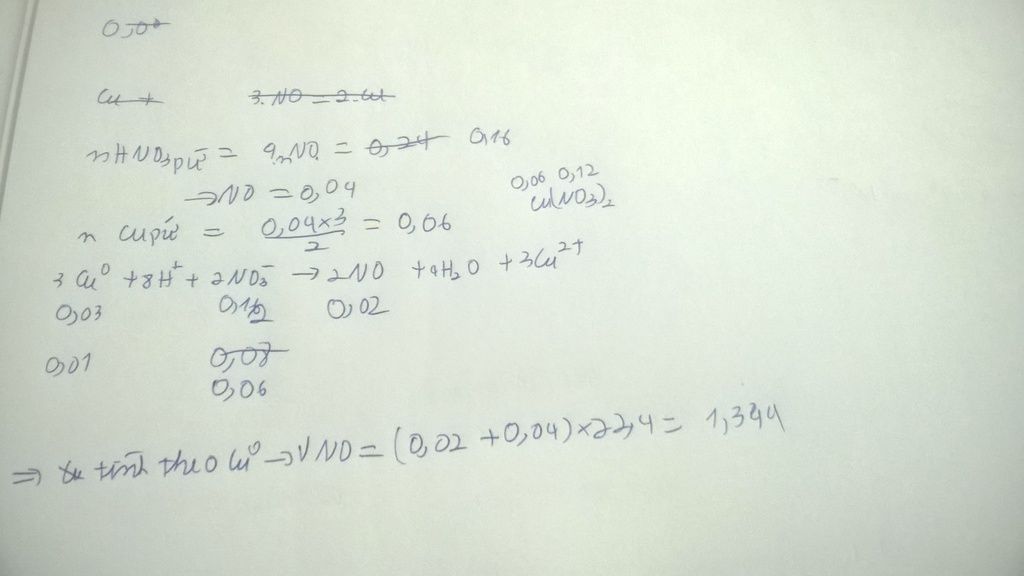 0,08
Cu + 3.NO = 2.Cu
nHNO3pứ = 4.nNO = 0,24 0,16
→NO = 0,04
0,06 0,12
Cu(NO3)2
n Cupứ = 0,04×3/2 = 0,06
3 Cu⁰ + 8H⁺ + 2NO3⁻ → 2NO + 4H2O + 3Cu²⁺
0,03 0,12 0,02
0,01 0,08
0,06
⇒ tính theo Cu⁰ → VNO = (0,02 + 0,04)×22,4 = 1,344